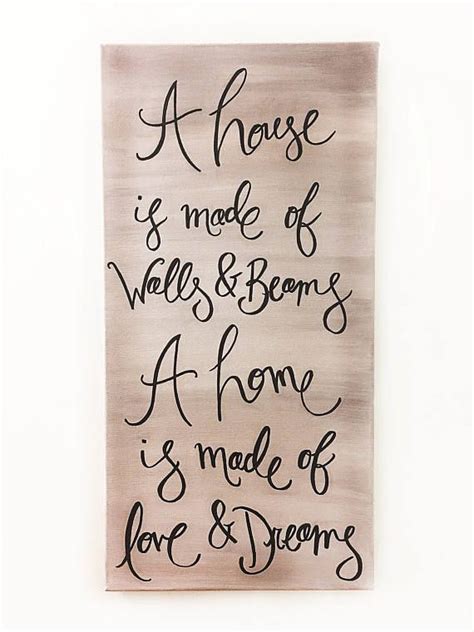 A house
is made of
Walls & Beams
A home
is made of
love & Dreams